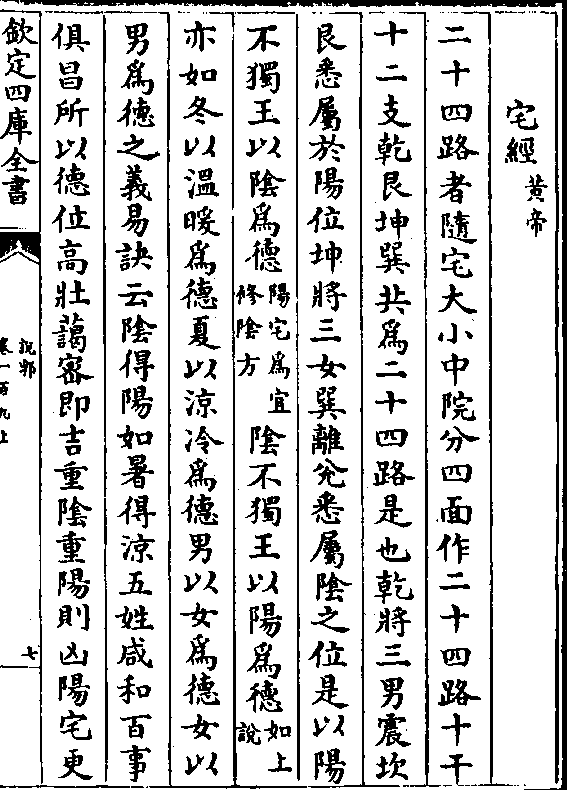 宅經黃帝
二十四路者隨宅大小中院分四面作二十四路十干
十二支乾艮坤巽共爲二十四路是也乾將三男震坎
艮悉屬於陽位坤將三女巽離兌悉屬陰之位是以陽
不獨王以陰爲德陽宅爲宜修陰方陰不獨王以陽爲德如上說
亦如冬以溫暖爲德夏以涼冷爲德男以女爲德女以
男爲德之義易訣云陰得陽如暑得涼五姓咸和百事
俱昌所以德位高壯藹密即吉重陰重陽則凶陽宅更
欽定四庫全書
說郛
卷一百九上
七